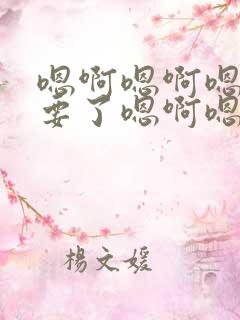 嗯啊嗯啊嗯
要了嗯啊嗯
楊文媛